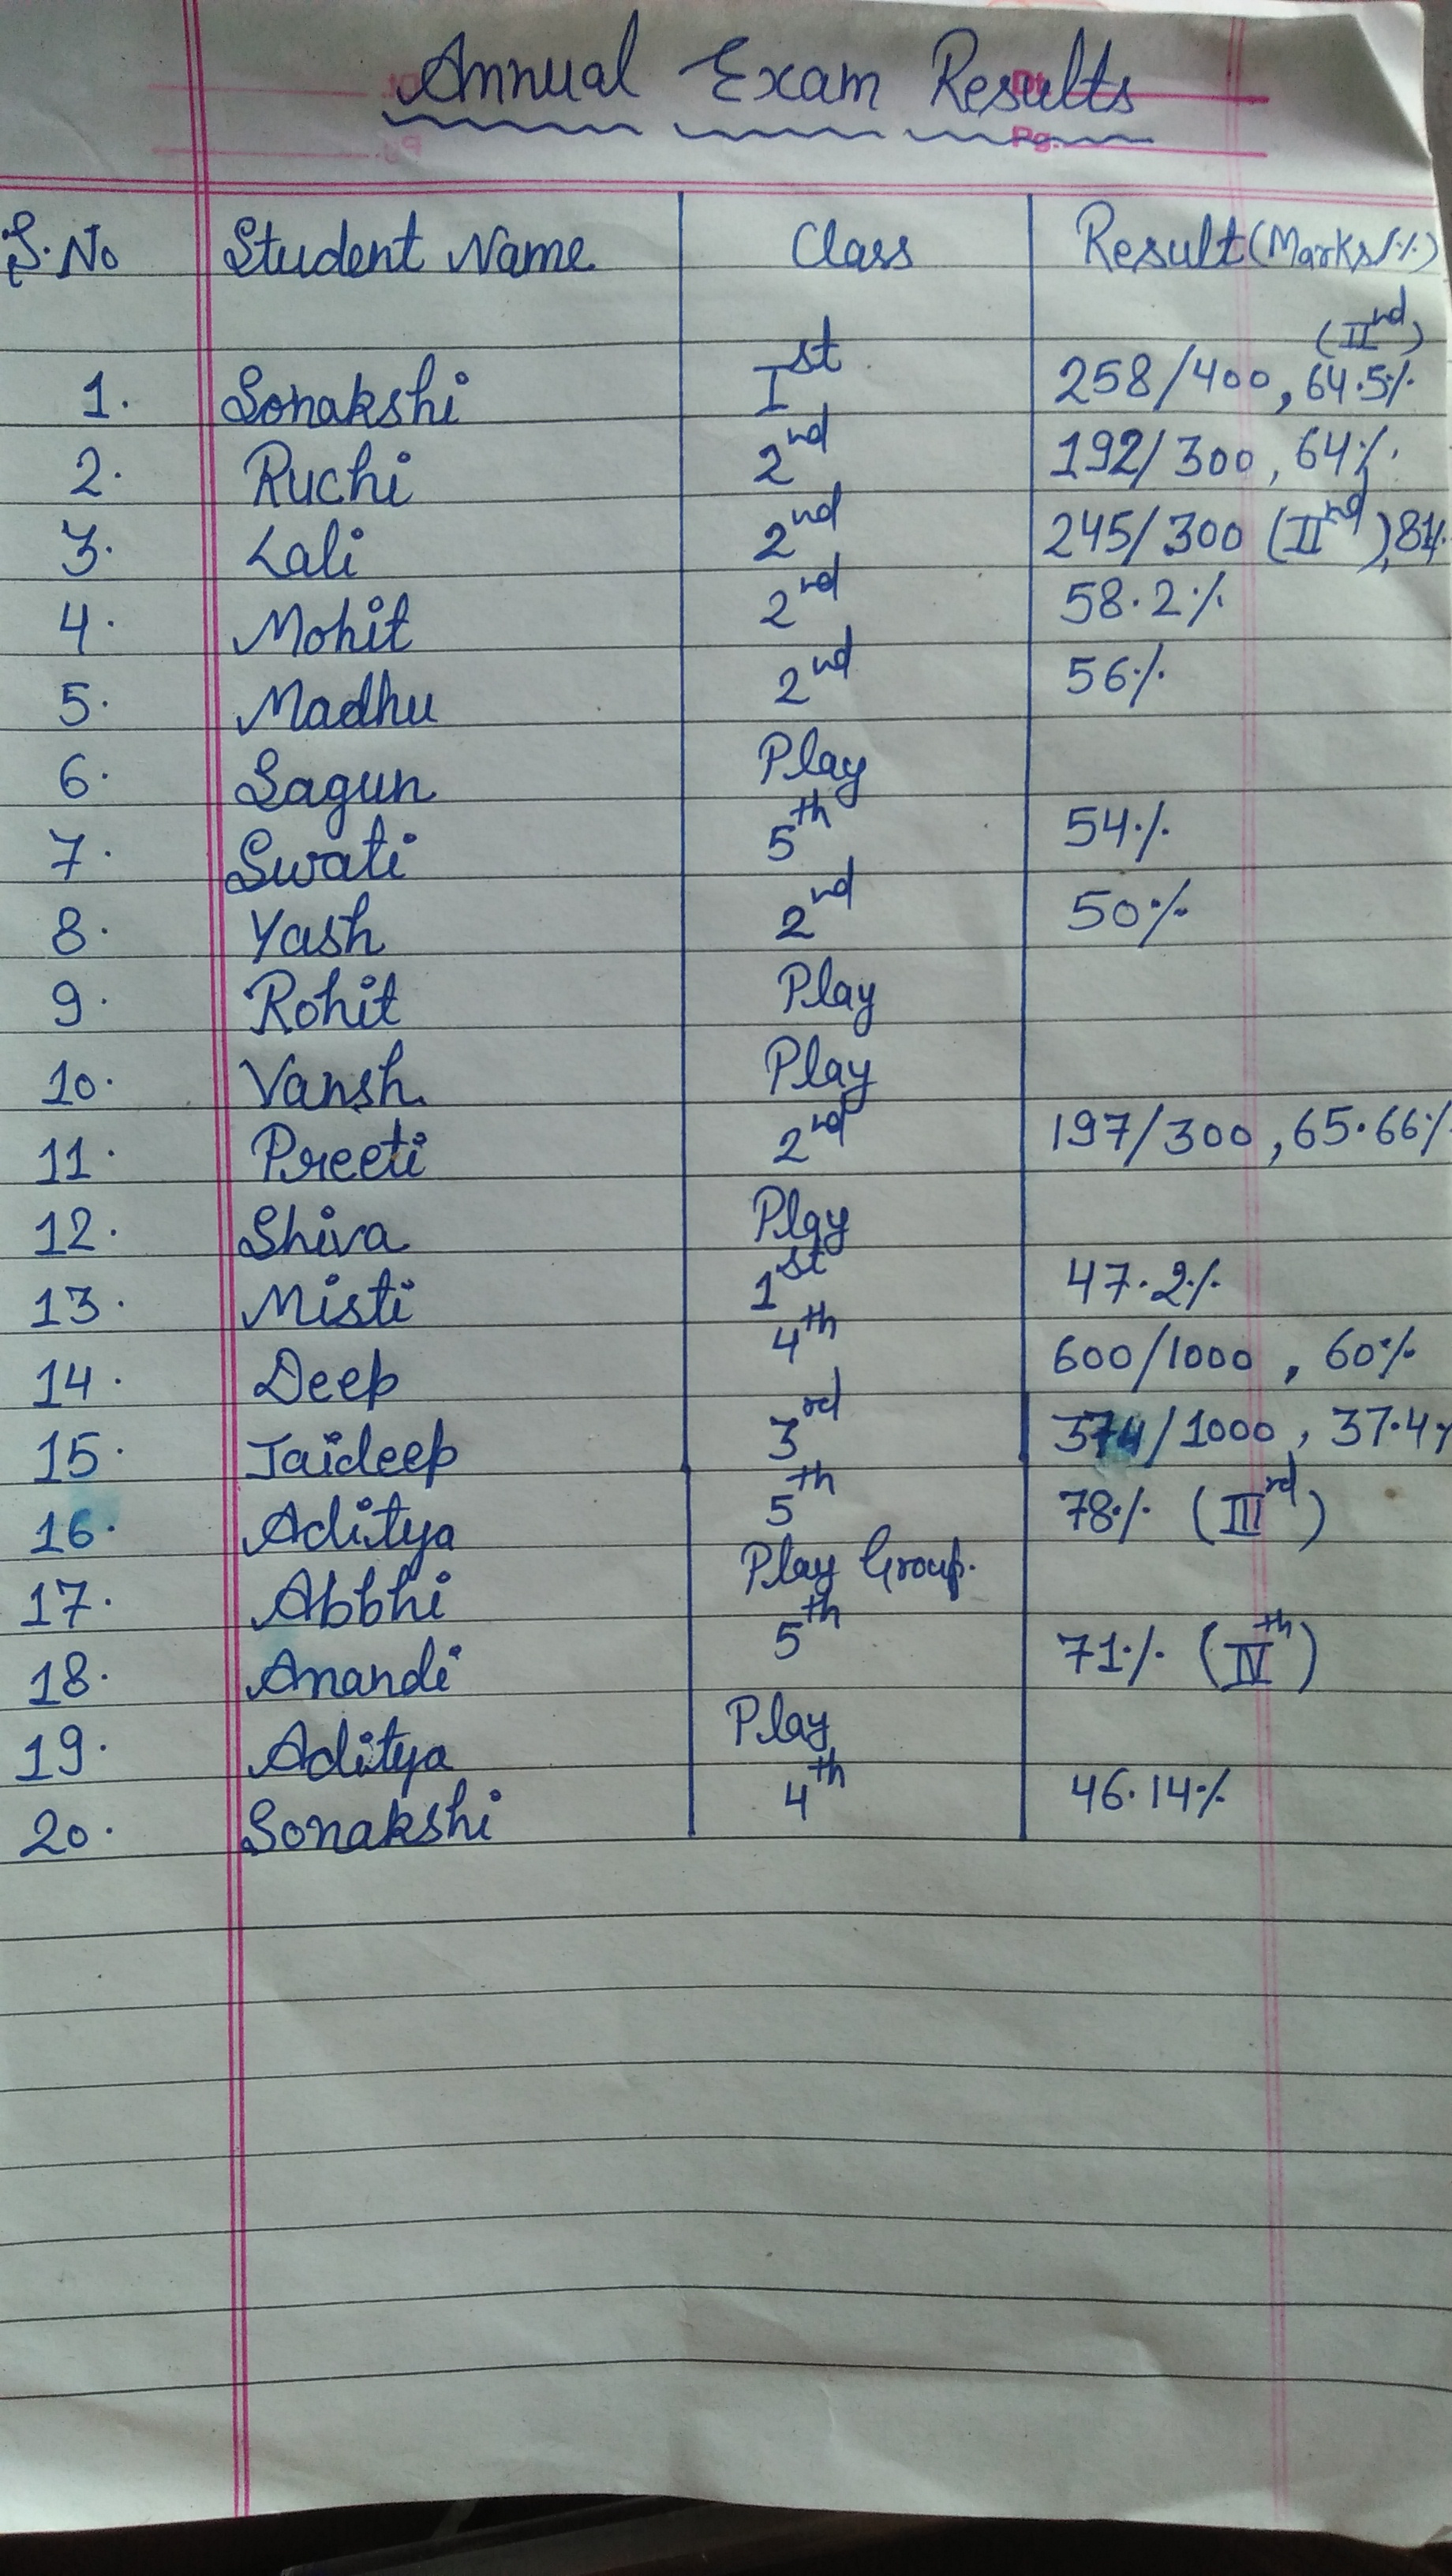 Annual Exam Results
Dt.
Pg.
S.No Student Name Class Result (Marks/%)
(IInd)
1. Sonakshi Ist 258/400, 64.5%
2. Ruchi 2nd 192/300, 64%
3. Lali 2nd 245/300 (IInd), 81%
4. Mohit 2nd 58.2%
5. Madhu 2nd 56%
6. Sagun Play
7. Swati 5th 54%
8. Yash 2nd 50%
9. Rohit Play
10. Vansh Play
11. Preeti 2nd 197/300, 65.66%
12. Shiva Play
13. Misti 1st 47.2%
14. Deep 4th 600/1000, 60%
15. Jaideep 3rd 374/1000, 37.4%
16. Aditya 5th 78% (IIIrd)
17. Abbhi Play Group.
18. Anandi 5th 71% (IVth)
19. Aditya Play
20. Sonakshi 4th 46.14%